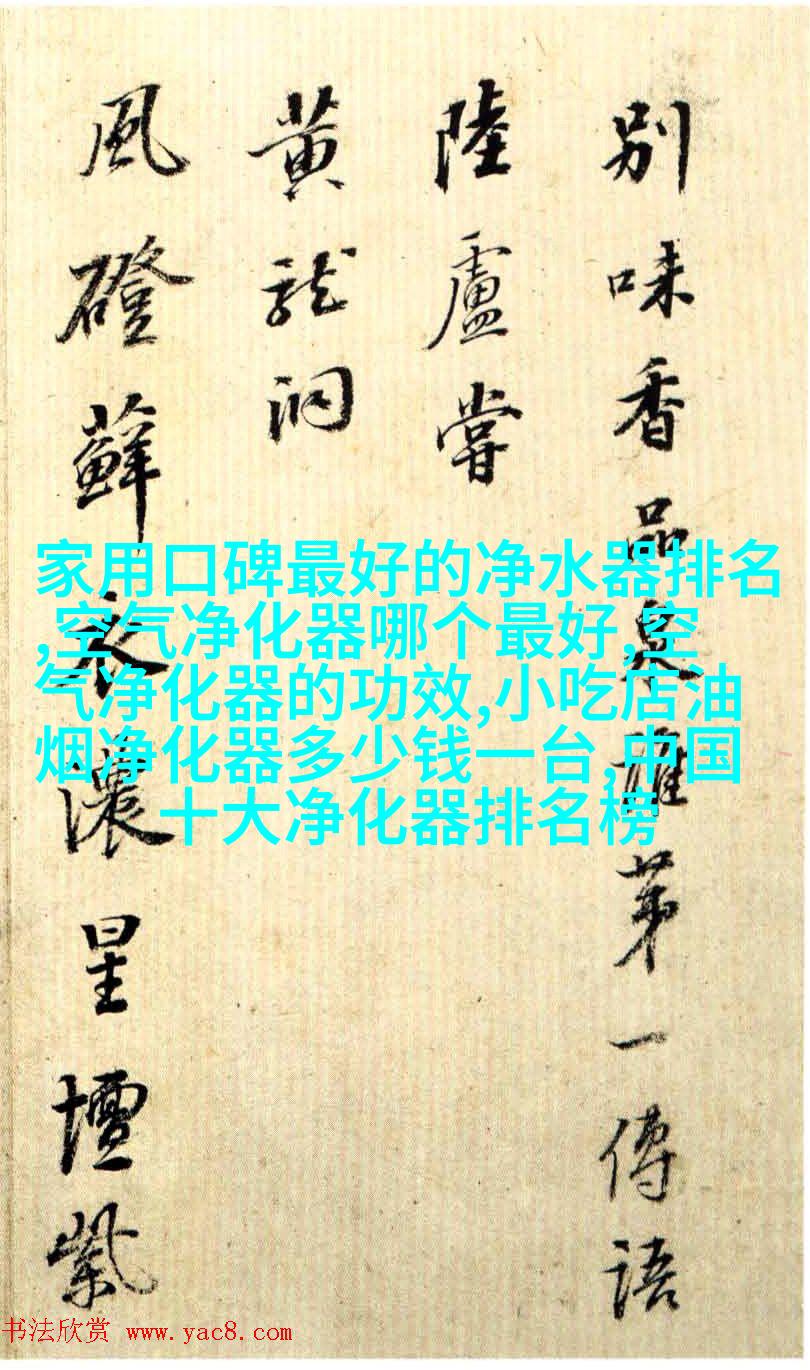 别味香品泉谁第一傳語
陸廬嘗
黄龍洞
風磴蘚衣濃星壇紫
家用口碑最好的净水器排名
,空气净化器哪个最好,空
气净化器的功效,小吃店油
烟净化器多少钱一台,中国
十大净化器排名榜
书法欣赏 www.yac8.com